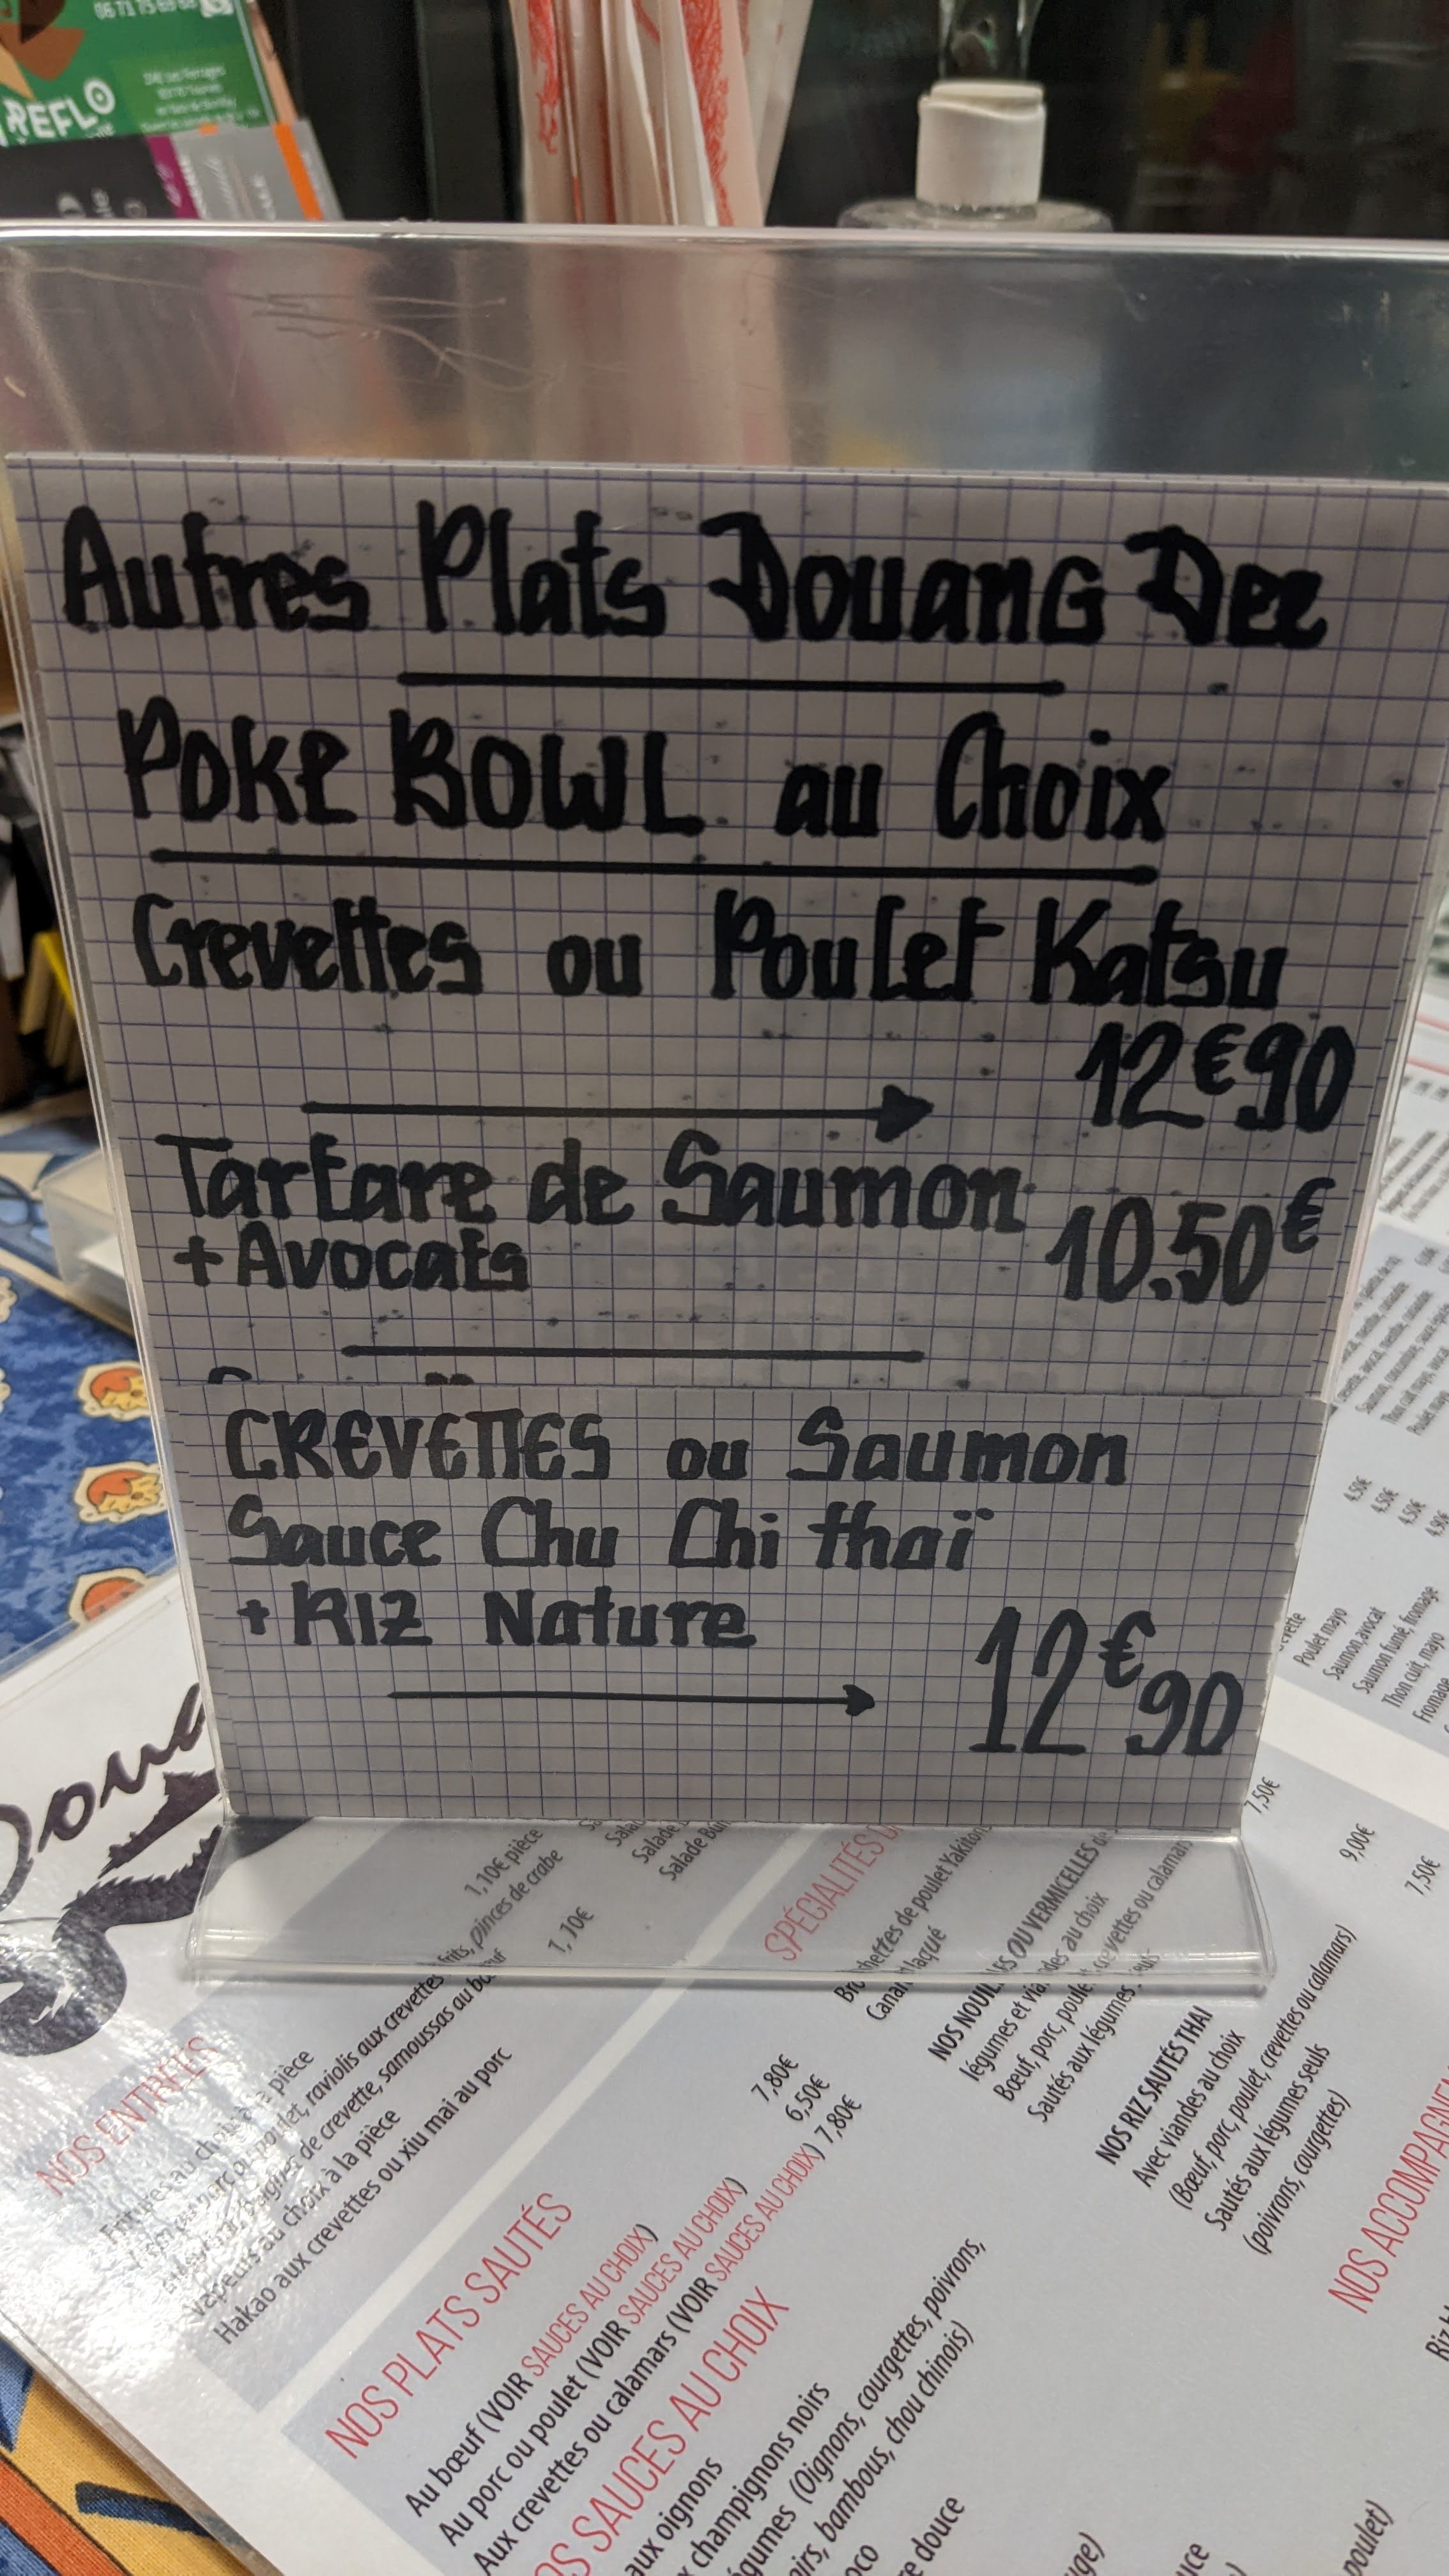 06 71 75 69 68
REFLO
Autres Plats Douang Dee
Poke BOWL au Choix
Crevettes ou Poulet Katsu
12€90
Tartare de Saumon
+Avocats
10.50€
CREVETTES ou Saumon
Sauce Chu Chi thaï
+ RIZ Nature
12€90
Poulet mayo
Saumon, avocat
Saumon fumé, fromage
Thon cuit, mayo
Fromage
4.50€
4.50€
4.50€
4.90€
7,50€
9,00€
7,50€
1,10€ pièce
1,10€
Salade
NOS ENTRÉES
Entrées au choix à la pièce
raviolis aux crevettes frits, pinces de crabe
de crevette, samoussas au bœuf
Vapeurs au choix à la pièce
Hakao aux crevettes ou xiu mai au porc
NOS PLATS SAUTÉS
Au bœuf (VOIR SAUCES AU CHOIX)
7,80€
Au porc ou poulet (VOIR SAUCES AU CHOIX)
6,50€
Aux crevettes ou calamars (VOIR SAUCES AU CHOIX)
7,80€
SAUCES AU CHOIX
aux oignons
champignons noirs
(Oignons, courgettes, poivrons,
bambous, chou chinois)
douce
SPÉCIALITÉS
Brochettes de poulet Yakitori
Canard laqué
NOS NOUILLES OU VERMICELLES
légumes et viandes au choix
Bœuf, porc, poulet, crevettes ou calamars
Sautés aux légumes seuls
NOS RIZ SAUTÉS THAI
Avec viandes au choix
(Bœuf, porc, poulet, crevettes ou calamars)
Sautés aux légumes seuls
(poivrons, courgettes)
NOS ACCOMPAGNEM
poulet)